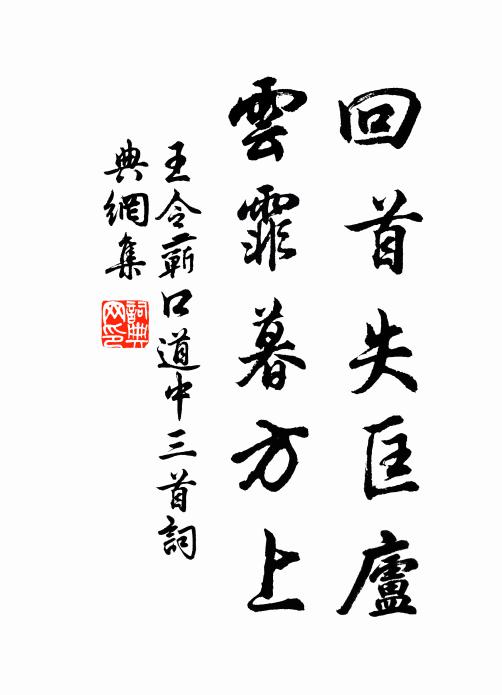 回首失匡廬
雲霏暮方上
王令蘄口道中三首詞
典網集
詞典
网印